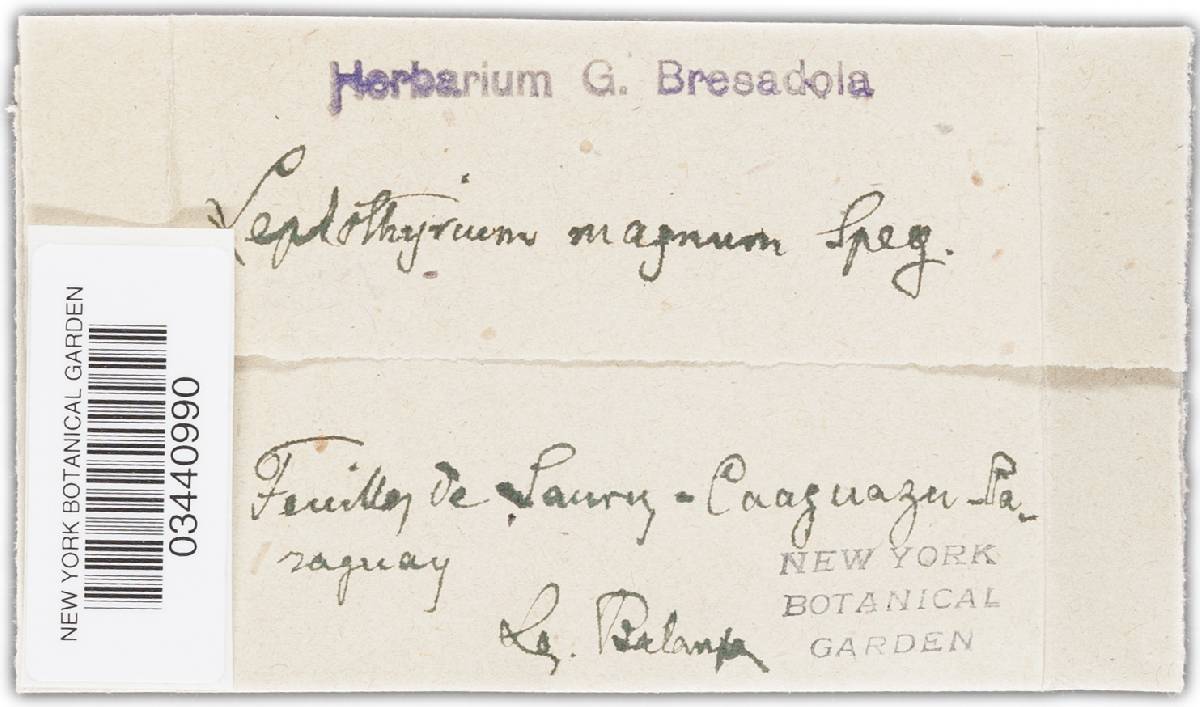 Herbarium G. Bresadola
Leptothyrium magnum Speg.
Feuilles de Laurus - Caaguazu - Pa-
raguay
Leg. Balansa
NEW YORK
BOTANICAL
GARDEN
NEW YORK BOTANICAL GARDEN
03440990